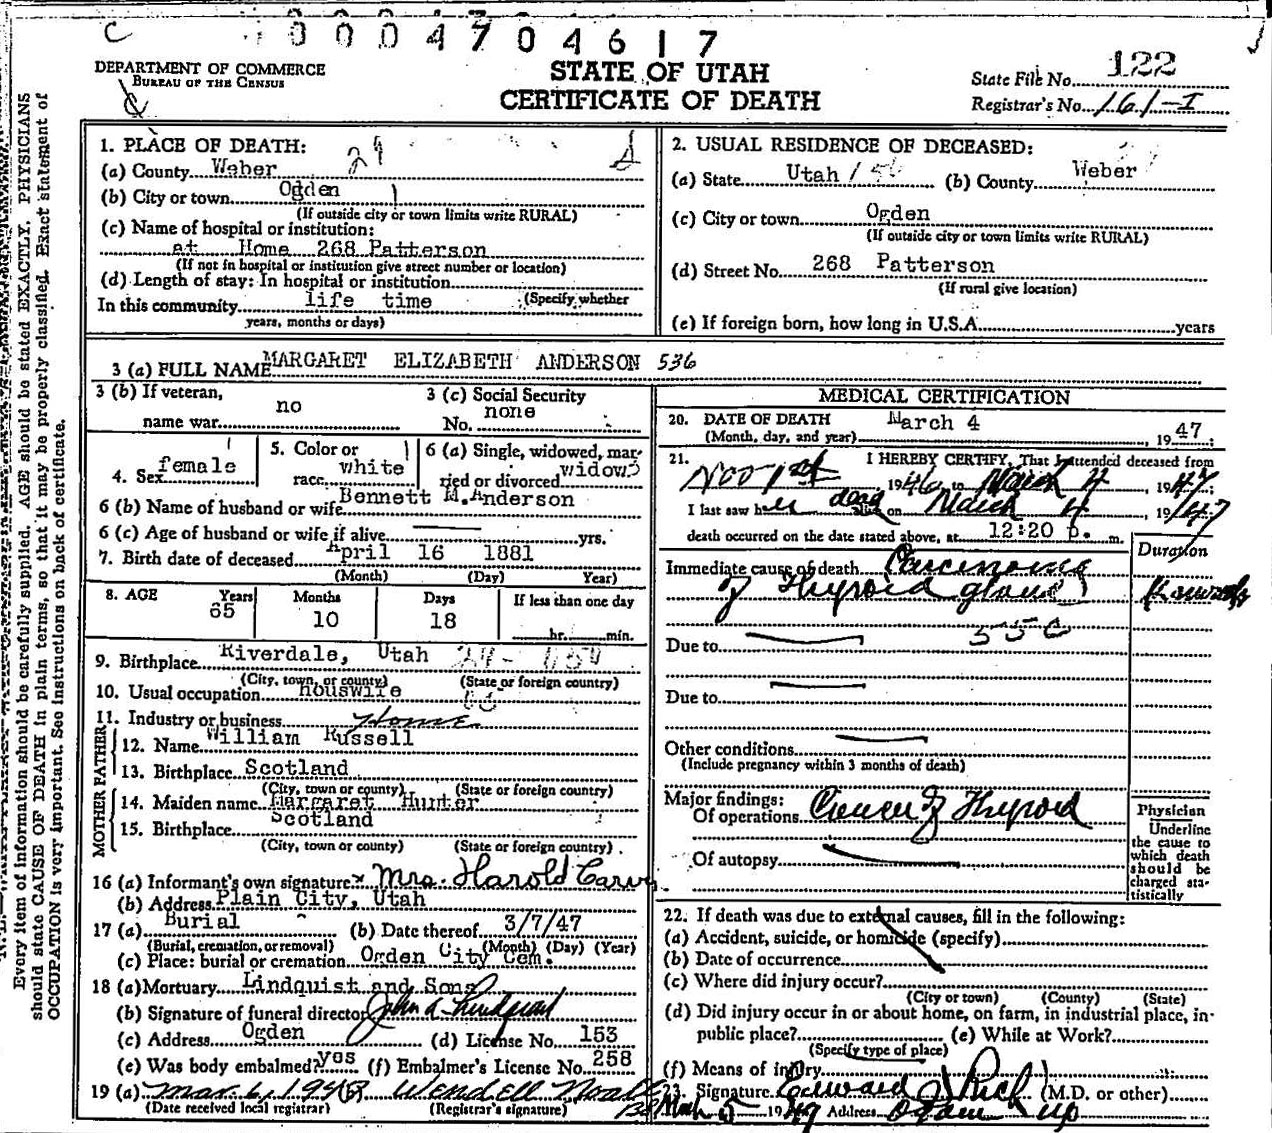 C 0004704617
DEPARTMENT OF COMMERCE
BUREAU OF THE CENSUS
STATE OF UTAH
CERTIFICATE OF DEATH
State File No. 122
Registrar's No. 161-I
Every item of information should be carefully supplied. AGE should be stated EXACTLY. PHYSICIANS
should state CAUSE OF DEATH in plain terms, so that it may be properly classified. Exact statement of
OCCUPATION is very important. See instructions on back of certificate.
1. PLACE OF DEATH: 29
(a) County Weber
(b) City or town Ogden
(If outside city or town limits write RURAL)
(c) Name of hospital or institution:
at Home 268 Patterson
(If not in hospital or institution give street number or location)
(d) Length of stay: In hospital or institution
(Specify whether
In this community life time
years, months or days)
2. USUAL RESIDENCE OF DECEASED:
(a) State Utah (b) County Weber
(c) City or town Ogden
(If outside city or town limits write RURAL)
(d) Street No. 268 Patterson
(If rural give location)
(e) If foreign born, how long in U.S.A. years
3 (a) FULL NAME MARGARET ELIZABETH ANDERSON 536
3 (b) If veteran,
name war no
3 (c) Social Security
No. none
4. Sex female
5. Color or
race white
6 (a) Single, widowed, mar-
ried or divorced widow
6 (b) Name of husband or wife Bennett M. Anderson
6 (c) Age of husband or wife if alive yrs.
7. Birth date of deceased April 16 1881
(Month) (Day) Year)
8. AGE Years Months Days If less than one day
65 10 18 hr. min.
9. Birthplace Riverdale, Utah
(City, town, or county) (State or foreign country)
10. Usual occupation houswife
11. Industry or business Home
FATHER
12. Name William Russell
13. Birthplace Scotland
(City, town or county) (State or foreign country)
MOTHER
14. Maiden name Margaret Hunter
15. Birthplace Scotland
(City, town or county) (State or foreign country)
16 (a) Informant's own signature x Mrs. Harold Carver
(b) Address Plain City, Utah
17 (a) Burial (b) Date thereof 3/7/47
(Burial, cremation, or removal) (Month) (Day) (Year)
(c) Place: burial or cremation Ogden City Cem.
18 (a) Mortuary Lindquist and Sons
(b) Signature of funeral director John A Lindquist
(c) Address Ogden (d) License No. 153
(e) Was body embalmed? yes (f) Embalmer's License No. 258
19 (a) Mar. 6, 194 Wendell Noall
(Date received local registrar) (Registrar's signature)
MEDICAL CERTIFICATION
20. DATE OF DEATH March 4
(Month, day, and year) , 1947;
21. I HEREBY CERTIFY, That I attended deceased from
Nov 1st , 1946, to March 4 , 1947;
I last saw her dead alive on March 4 , 1947
death occurred on the date stated above, at 12:20 p. m.
Duration
Immediate cause of death Carcinoma
of Thyroid gland
Due to
Due to
Other conditions
(Include pregnancy within 3 months of death)
Major findings:
Of operations Cancer of Thyroid
Of autopsy
Physician
Underline
the cause to
which death
should be
charged sta-
tistically
22. If death was due to external causes, fill in the following:
(a) Accident, suicide, or homicide (specify)
(b) Date of occurrence
(c) Where did injury occur?
(City or town) (County) (State)
(d) Did injury occur in or about home, on farm, in industrial place, in
public place? (e) While at Work?
(Specify type of place)
(f) Means of injury
23. Signature Edward I Rich (M.D. or other)
Mch 5 1947 Address Ogden